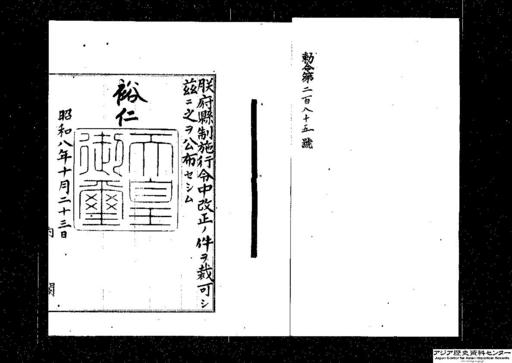 勅令第二百八十五號
朕府縣制施行令中改正ノ件ヲ裁可シ
茲ニ之ヲ公布セシム
裕仁
天皇
御璽
昭和八年十月二十三日
内閣
アジア歴史資料センター
Japan Center for Asian Historical Records